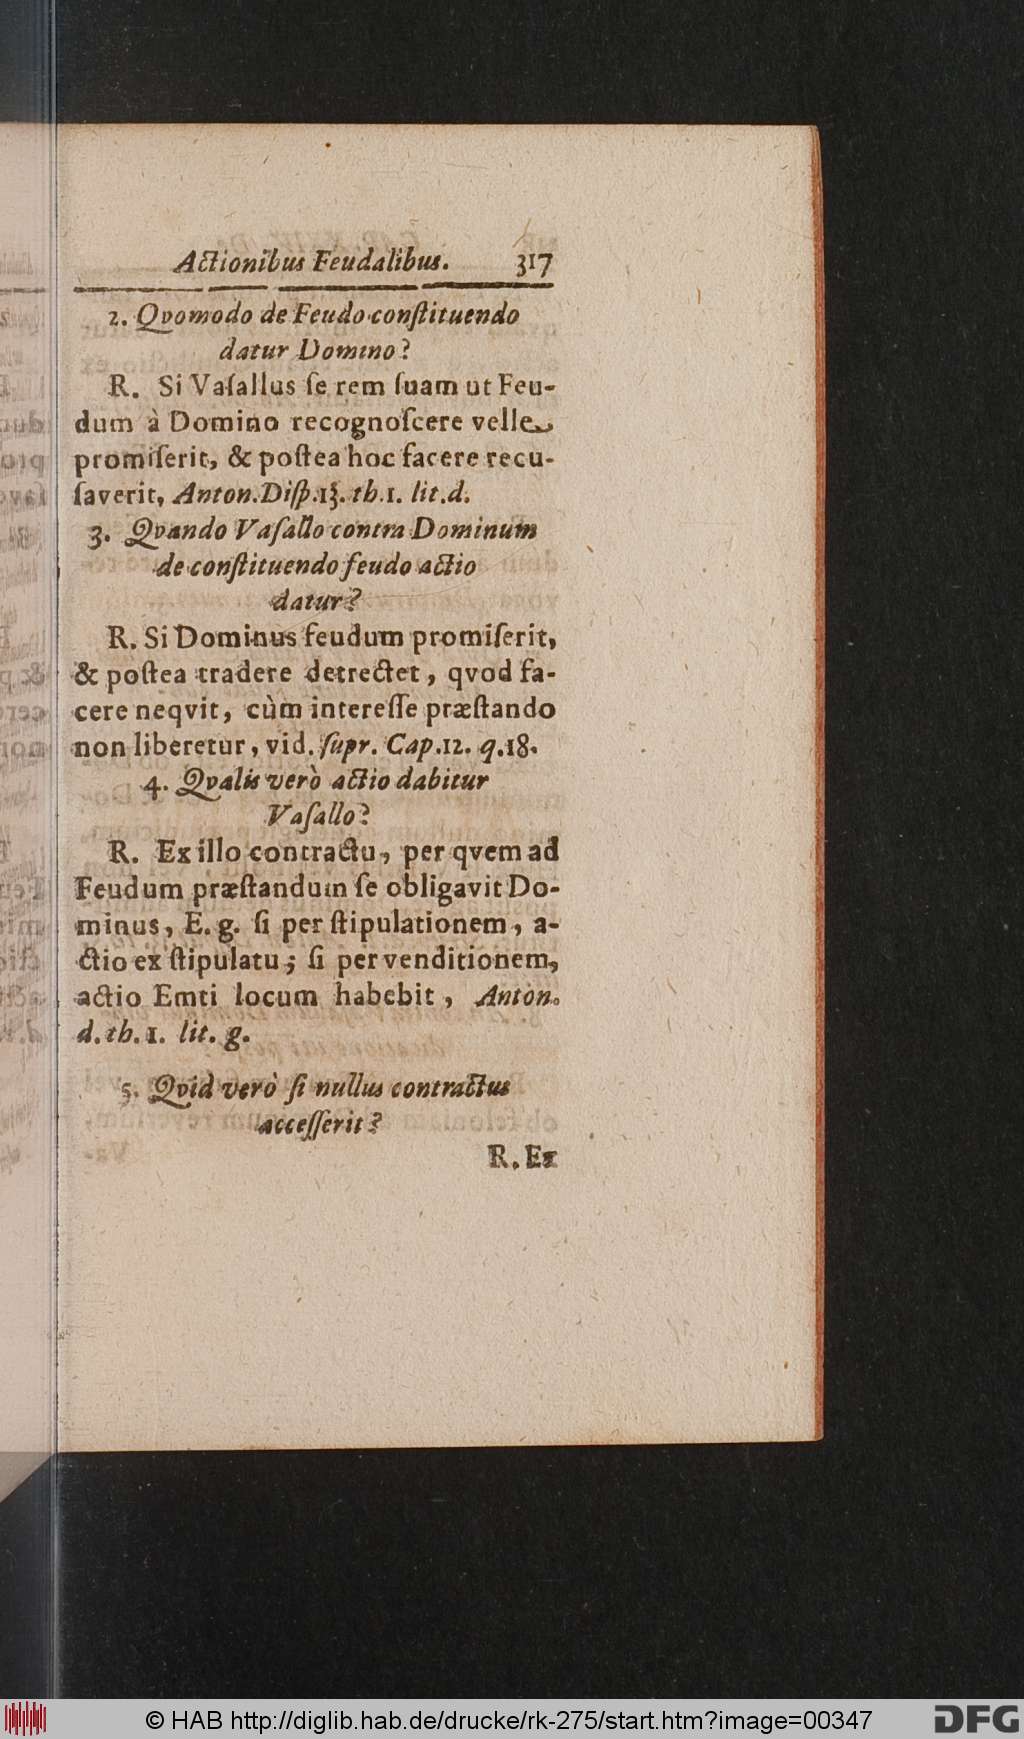 Actionibus Feudalibus. 317
2. Qvomodo de Feudo conſtituendo
datur Domino?
R. Si Vaſallus ſe rem ſuam ut Feu-
dum à Domino recognoſcere velle
promiſerit, & poſtea hoc facere recu-
ſaverit, Anton. Diſp. 13. th. 1. lit. d.
3. Qvando Vaſallo contra Dominum
de conſtituendo feudo actio
datur?
R. Si Dominus feudum promiſerit,
& poſtea tradere detrectet, qvod fa-
cere neqvit, cùm intereſſe præſtando
non liberetur, vid. ſupr. Cap. 12. q. 18.
4. Qvalis verò actio dabitur
Vaſallo?
R. Ex illo contractu, per qvem ad
Feudum præſtandum ſe obligavit Do-
minus, E. g. ſi per ſtipulationem, a-
ctio ex ſtipulatu; ſi per venditionem,
actio Emti locum habebit, Anton.
d. th. 1. lit. g.
5. Qvid verò ſi nullus contractus
acceſſerit?
R. Ex
© HAB http://diglib.hab.de/drucke/rk-275/start.htm?image=00347
DFG